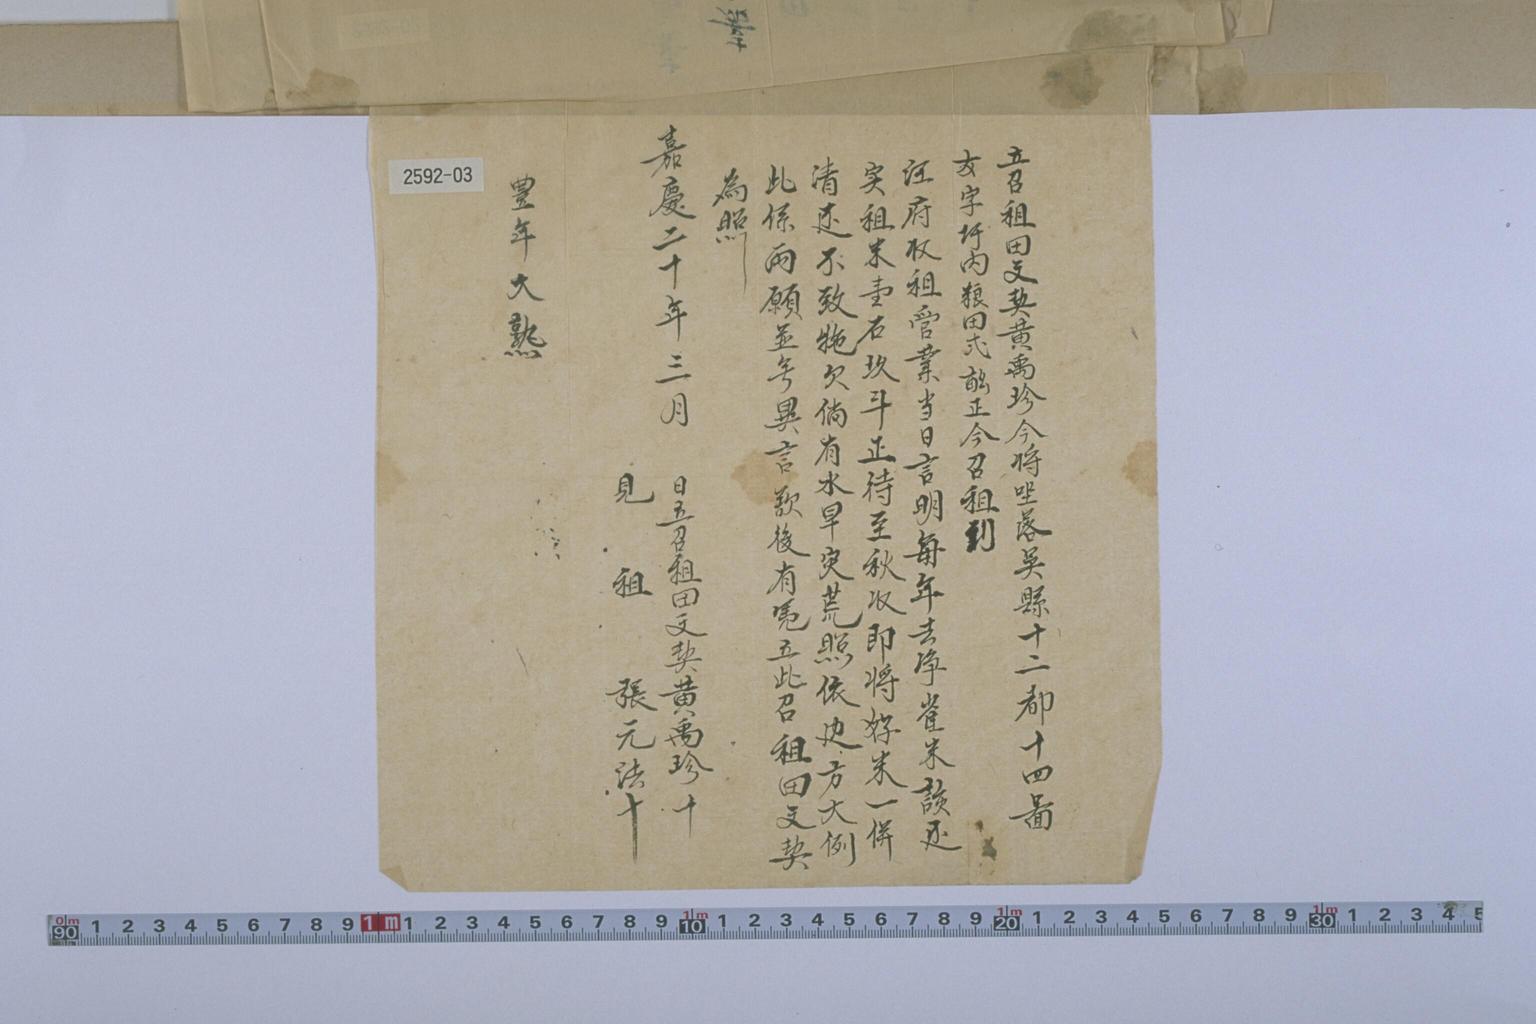 立召租田文契黄禹珍今将坐落吳縣十二都十四啚
友字圩内粮田弍畝正今召租到
汪府收租營業当日言明每年去净雀米談还
实租米壹石玖斗正待至秋收即将好米一併
清还不致拖欠倘有水旱災荒照依边方大例
此係兩願並无異言歇後有凴立此召租田文契
為照
嘉慶二十年三月 日立召租田文契黄禹珍十
見 租 張元法十
豊年大熟
2592-03